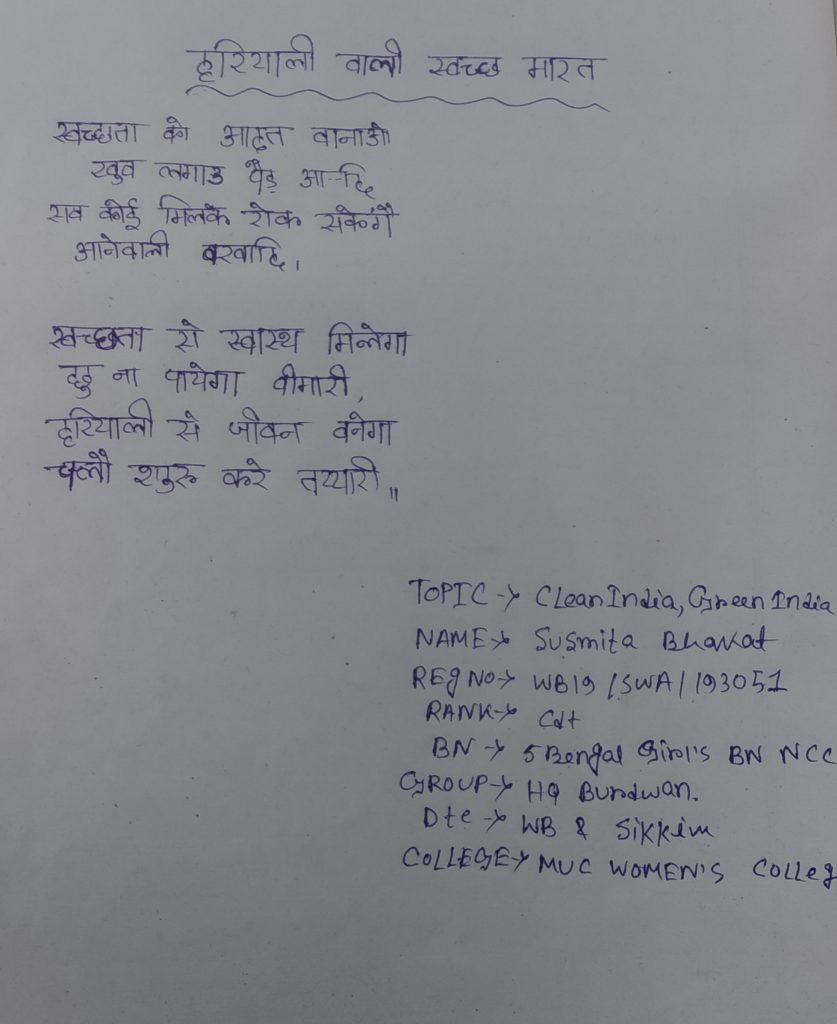 हरियाली वाली स्वच्छ भारत
स्वच्छता को आदत वानाओ
खुव लगाउ पैड़ आ-दि
सव कोई मिलके रोक सकेगें
आनेवाली बरवादि,
स्वच्छता से स्वास्थ मिलेगा
ना पायेगा वीमारी,
हरियाली से जीवन वनेगा
चलौ शुरु करे तय्यारी॥
TOPIC → Clean India, Green India
NAME → Susmita Bhakat
REg NO → WB19/SWA/193051
RANK → Cdt
BN → 5 Bengal Girl's BN NCC
GROUP → HQ Burdwan.
Dte → WB & Sikkim
COLLEGE → MUC WOMEN'S Colleg